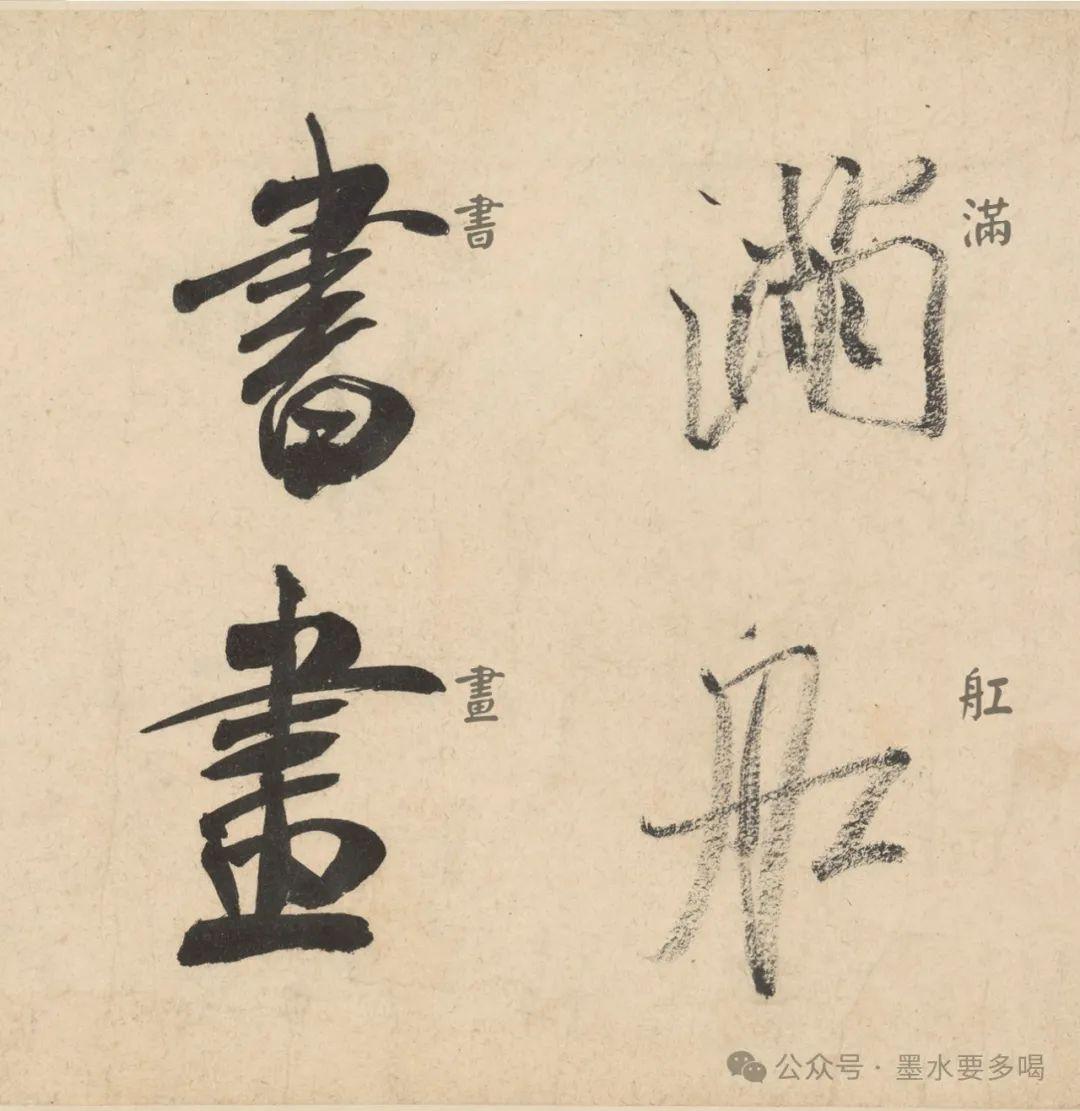 滿舡
滿
舡
書畫
書
畫
公众号·墨水要多喝